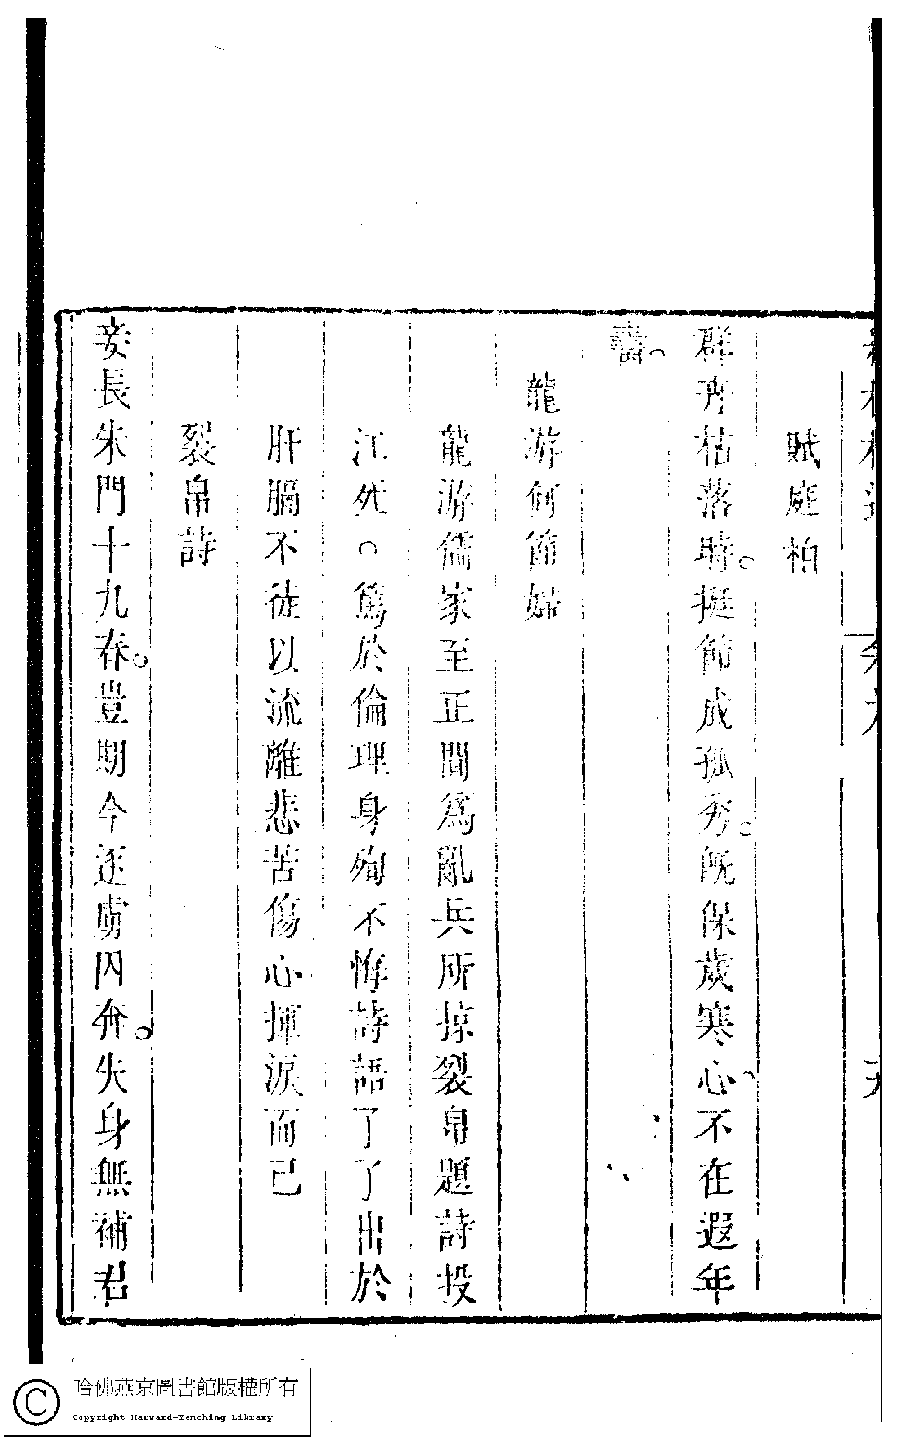 賦庭柏
群卉枯落時。挺節成孤秀。旣保歲寒心。不在遐年
壽。
龍游何節婦
龍游儒家至正間爲亂兵所掠裂帛題詩投
江死。篤於倫理身殉不悔詩語了了出於
肝膈不徒以流離悲苦傷心揮淚而已
裂帛詩
妾長朱門十九春。豈期今逐虜囚奔。失身無補君
哈佛燕京圖書館版權所有
Copyright Harvard-Yenching Library